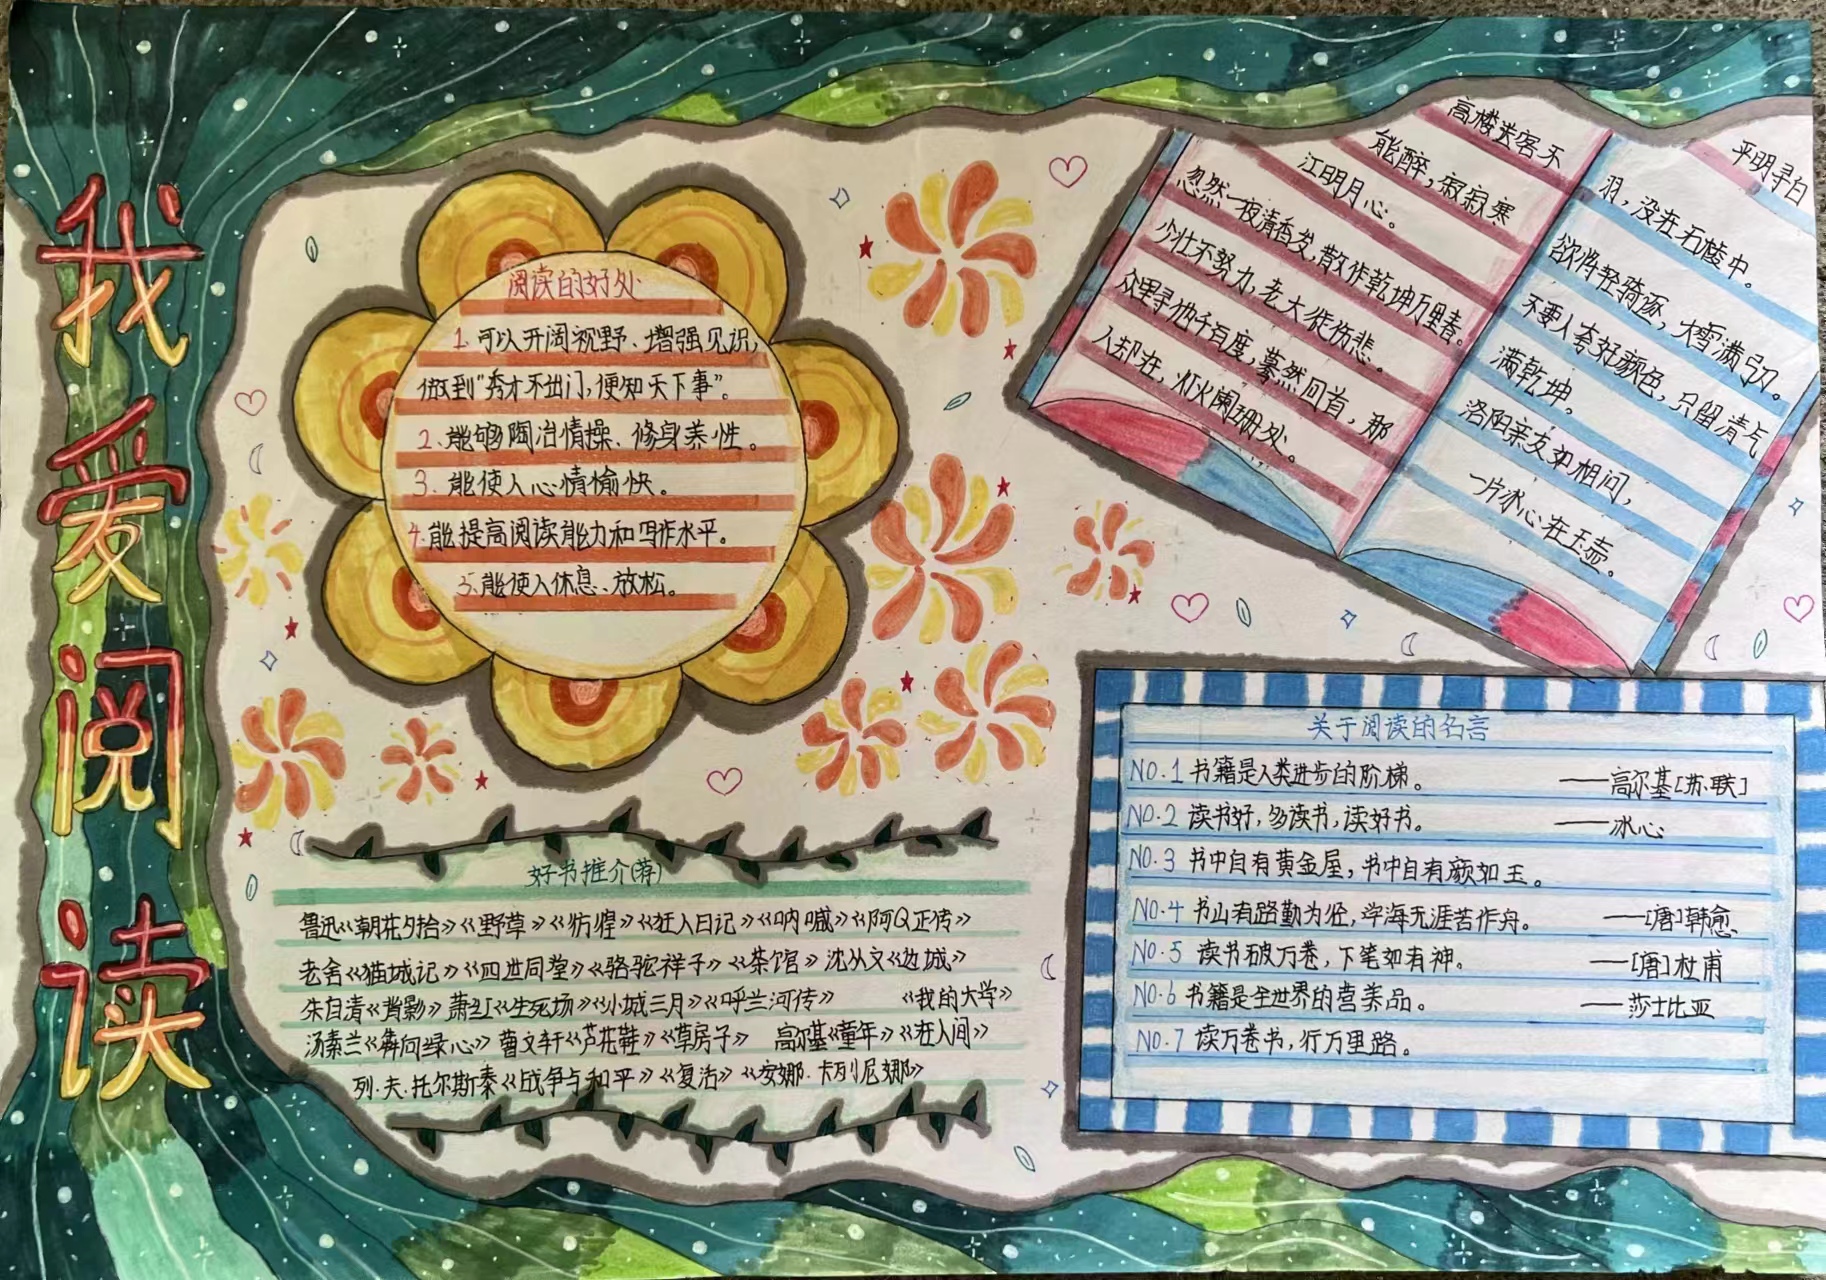 我爱阅读
阅读的好处
1.可以开阔视野、增强见识,
做到“秀才不出门,便知天下事”。
2.能够陶冶情操、修身养性。
3.能使人心情愉快。
4.能提高阅读能力和写作水平。
5.能使人休息、放松。
高楼送客不
能醉,寂寂寒
江明月心。
忽然一夜清香发,散作乾坤万里春。
少壮不努力,老大徒伤悲。
众里寻他千百度,蓦然回首,那
人却在,灯火阑珊处。
平明寻白
羽,没在石棱中。
欲将轻骑逐,大雪满弓刀。
不要人夸好颜色,只留清气
满乾坤。
洛阳亲友如相问,
一片冰心在玉壶。
好书推介(荐)
鲁迅《朝花夕拾》《野草》《彷徨》《狂人日记》《呐喊》《阿Q正传》
老舍《猫城记》《四世同堂》《骆驼祥子》《茶馆》 沈从文《边城》
朱自清《背影》 萧红《生死场》《小城三月》《呼兰河传》 《我的大学》
汤素兰《奔向绿心》 曹文轩《芦花鞋》《草房子》 高尔基《童年》《在人间》
列.夫.托尔斯泰《战争与和平》《复活》《安娜.卡列尼娜》
关于阅读的名言
NO.1 书籍是人类进步的阶梯。 ——高尔基[苏联]
NO.2 读书好,多读书,读好书。 ——冰心
NO.3 书中自有黄金屋,书中自有颜如玉。
NO.4 书山有路勤为径,学海无涯苦作舟。 ——[唐]韩愈
NO.5 读书破万卷,下笔如有神。 ——[唐]杜甫
NO.6 书籍是全世界的营养品。 ——莎士比亚
NO.7 读万卷书,行万里路。